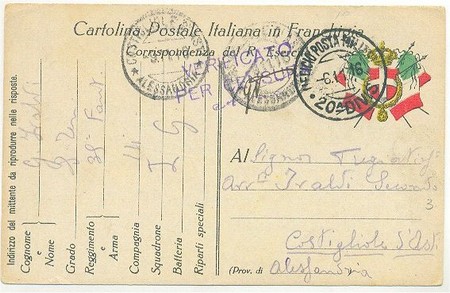 Cartolina Postale Italiana in Franchigia
Corrispondenza del R. Esercito
VERIFICATO
PER CENSURA
ALESSANDRIA
UFFICIO POSTA MILITARE
6.11.16
20ª DIVIS
Indirizzo del mittente da riprodurre nelle risposte.
Cognome
e
Nome
Grado
Reggimento
e
Arma
38° Fant
Compagnia
14
Squadrone
Batteria
Riparti speciali
Al Signor
Iraldi Secondo
3
Costigliole d'Asti
(Prov. di Alessandria